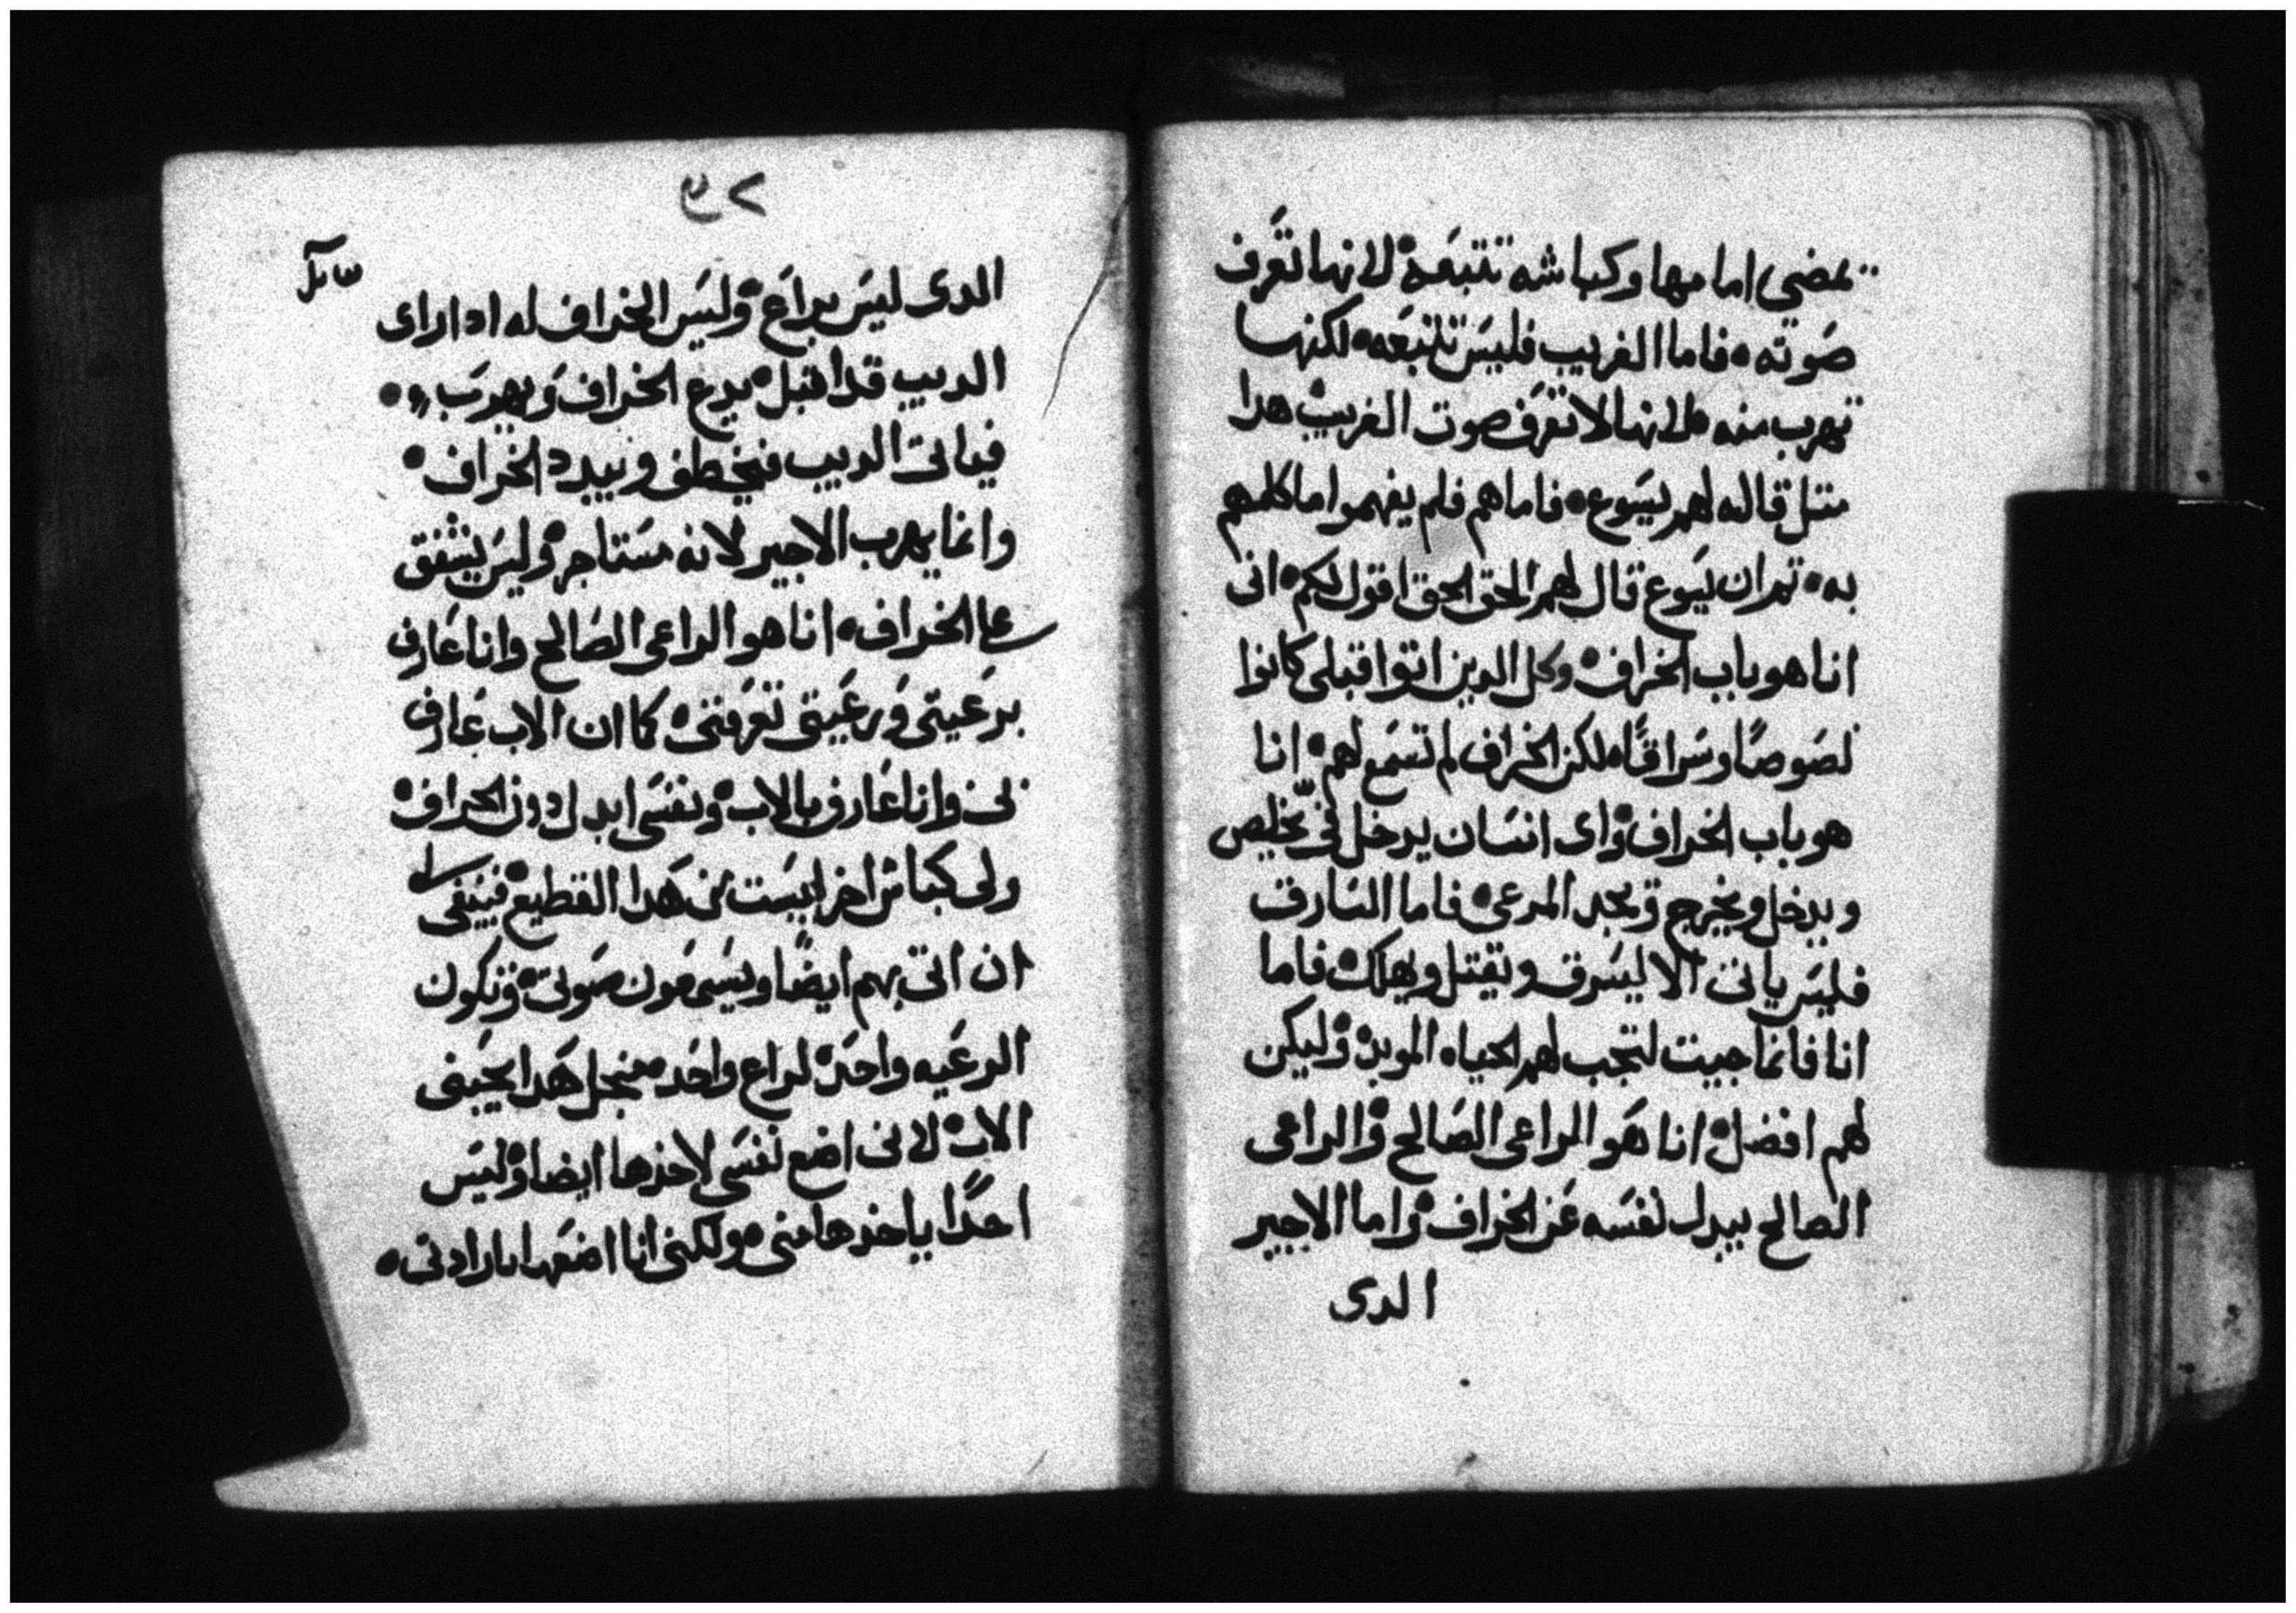 يمضى امامها وكباشه تتبعه لانها تعرف
صوته فاما الغريب فليس تتبعه لكنها
تهرب منه لانها لا تعرف صوت الغريب هدا
متل قاله لهم يسوع فاما هم فلم يفهموا ما كلمهم
به تم ان يسوع قال لهم الحق الحق اقول لكم انى
انا هو باب الخراف وكل الدين اتوا قبلى كانوا
لصوصًا وسراقًا لكن الخراف لم تسمع لهم انا
هو باب الخراف واى انسان يدخل فىّ يخلص
ويدخل ويخرج ويجد المرعى فاما السارق
فليس ياتى الا ليسرق ويقتل ويهلك فاما
انا فانما جيت لتجب لهم الحياه الموبده وليكن
لهم افضل انا هو الراعى الصالح والراعى
الصالح يبدل نفسه عن الخراف واما الاجير
الدى
الدى ليس براع وليس الخراف له ادا راى
الديب قد اقبل يدع الخراف ويهرب
فياتى الديب فيخطف ويبدد الخراف
وانما يهرب الاجير لانه مستاجر وليس يشفق
على الخراف انا هو الراعى الصالح وانا عارف
برعيتى ورعيتى تعرفنى كما ان الاب عارف
بى وانا عارف بالاب ونفسى ابدل دون الخراف
ولى كباش اخر ليست من هدا القطيع فينبغى لى
ان اتى بهم ايضًا ويسمعون صوتى وتكون
الرعيه واحده لراع واحد منجل هدا يحبنى
الاب لانى اضع نفسى لاخذها ايضا وليس
احدًا ياخذها منى ولكنى انا اضعها بارادتى